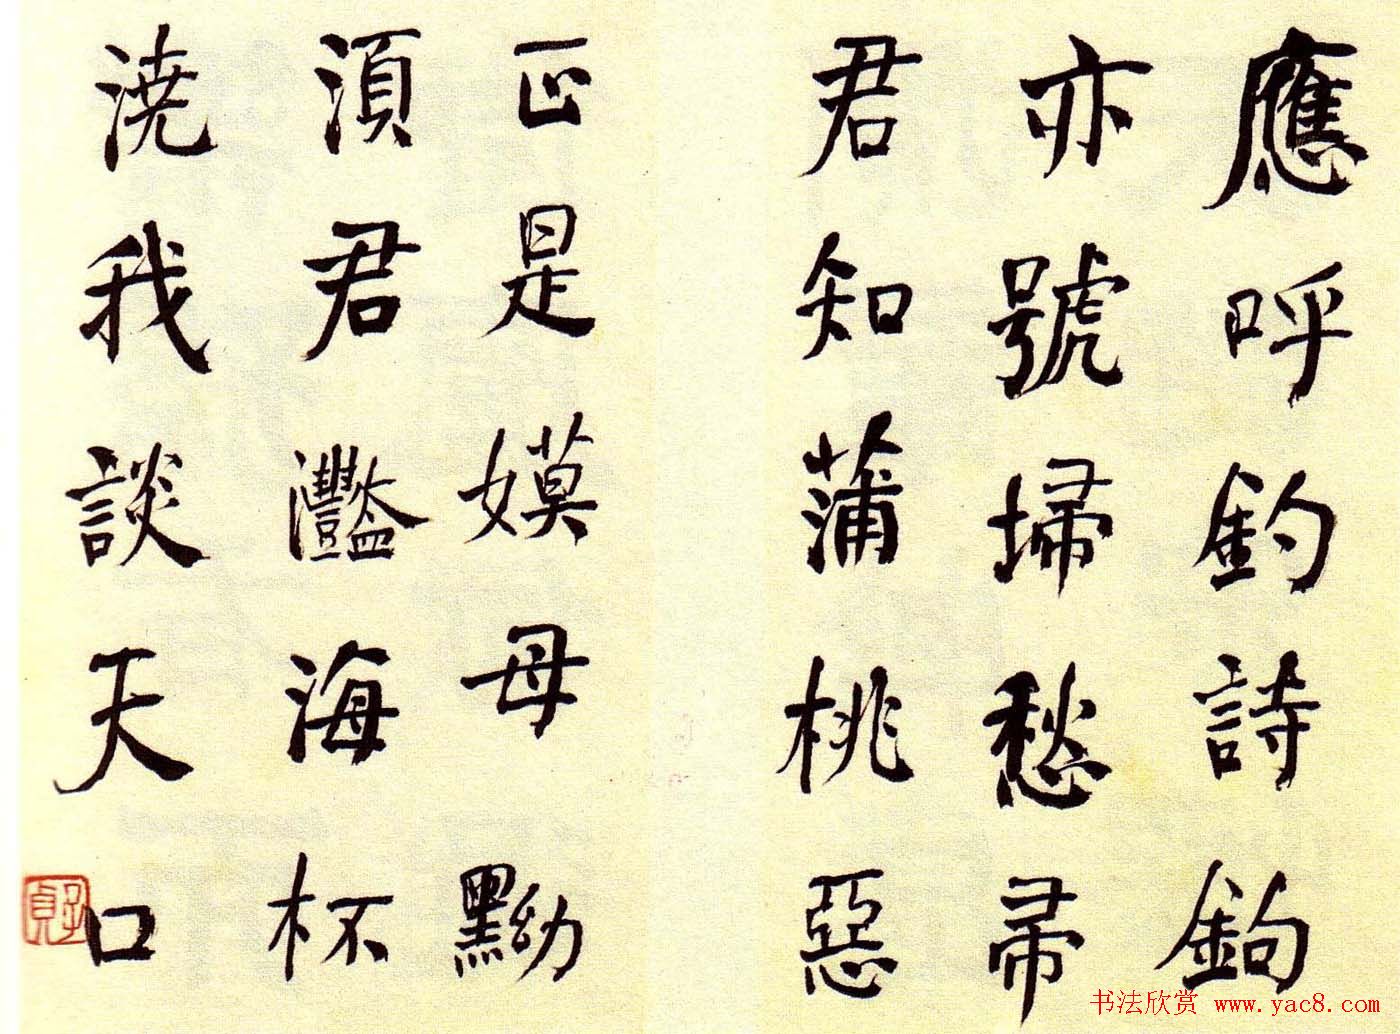 應呼釣詩鉤
亦號掃愁帚
君知蒲桃惡
正是嫫母黝
須君灩海杯
澆我談天口
子貞
书法欣赏 www.yac8.com